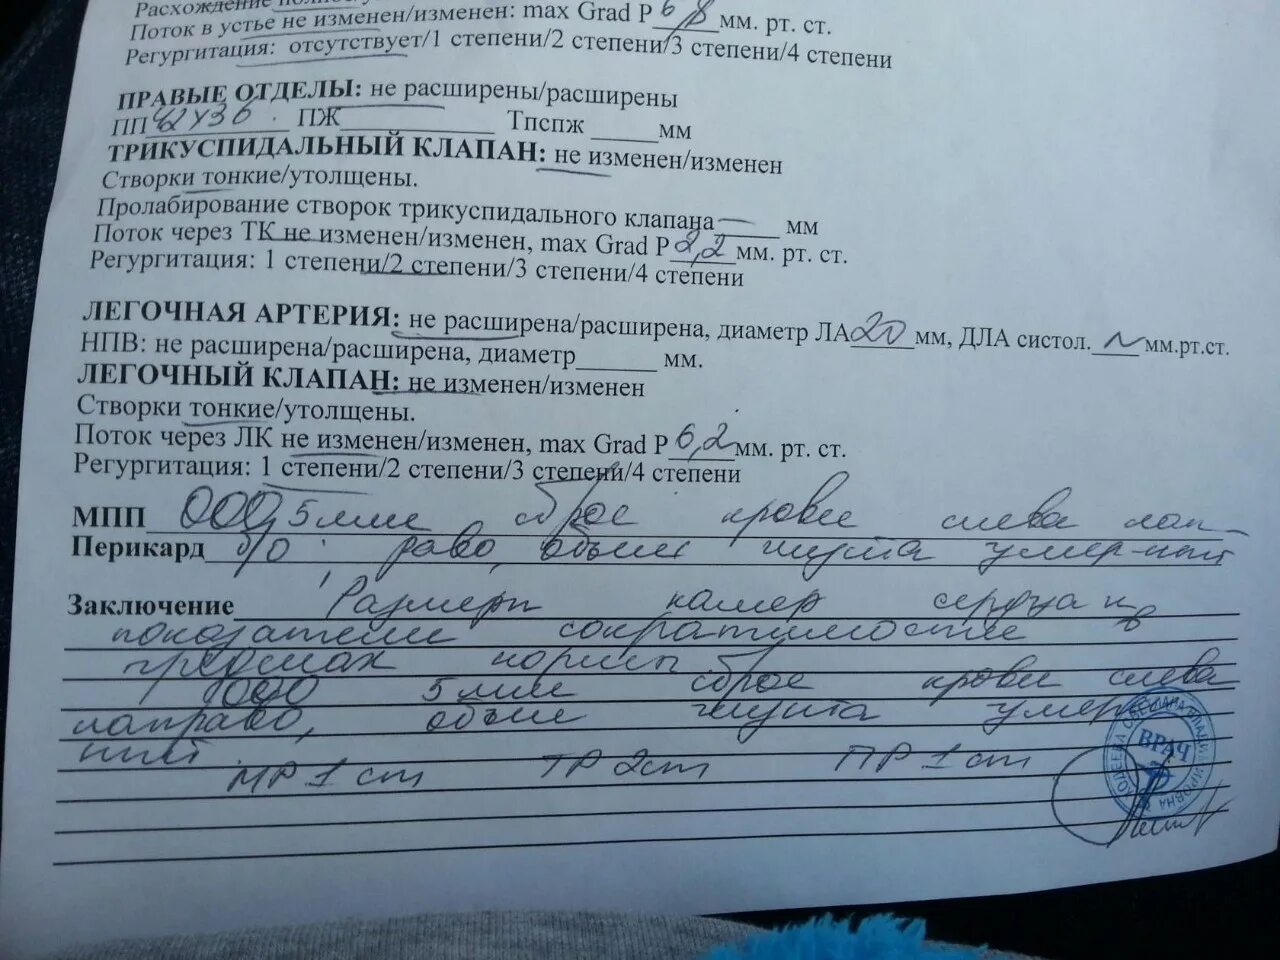 Расхождение
Поток в устье не изменен/изменен: max Grad P 6,8 мм. рт. ст.
Регургитация: отсутствует/1 степени/2 степени/3 степени/4 степени
ПРАВЫЕ ОТДЕЛЫ: не расширены/расширены
ПП 42х36. ПЖ____ Тпспж ____мм
ТРИКУСПИДАЛЬНЫЙ КЛАПАН: не изменен/изменен
Створки тонкие/утолщены.
Пролабирование створок трикуспидального клапана — мм
Поток через ТК не изменен/изменен, max Grad P 2,2 мм. рт. ст.
Регургитация: 1 степени/2 степени/3 степени/4 степени
ЛЕГОЧНАЯ АРТЕРИЯ: не расширена/расширена, диаметр ЛА 20 мм, ДЛА систол. N мм.рт.ст.
НПВ: не расширена/расширена, диаметр______ мм.
ЛЕГОЧНЫЙ КЛАПАН: не изменен/изменен
Створки тонкие/утолщены.
Поток через ЛК не изменен/изменен, max Grad P 6,2 мм. рт. ст.
Регургитация: 1 степени/2 степени/3 степени/4 степени
МПП ООО 5 мм сброс крови слева нап-
Перикард б/о. раво, объем шунта умер-ный
Заключение Размеры камер сердца и
показатели сократимости в
пределах нормы
ООО 5 мм сброс крови слева
направо, объем шунта умерен
ный.
МР 1 ст ТР 2 ст ПР 1 ст
ВРАЧ